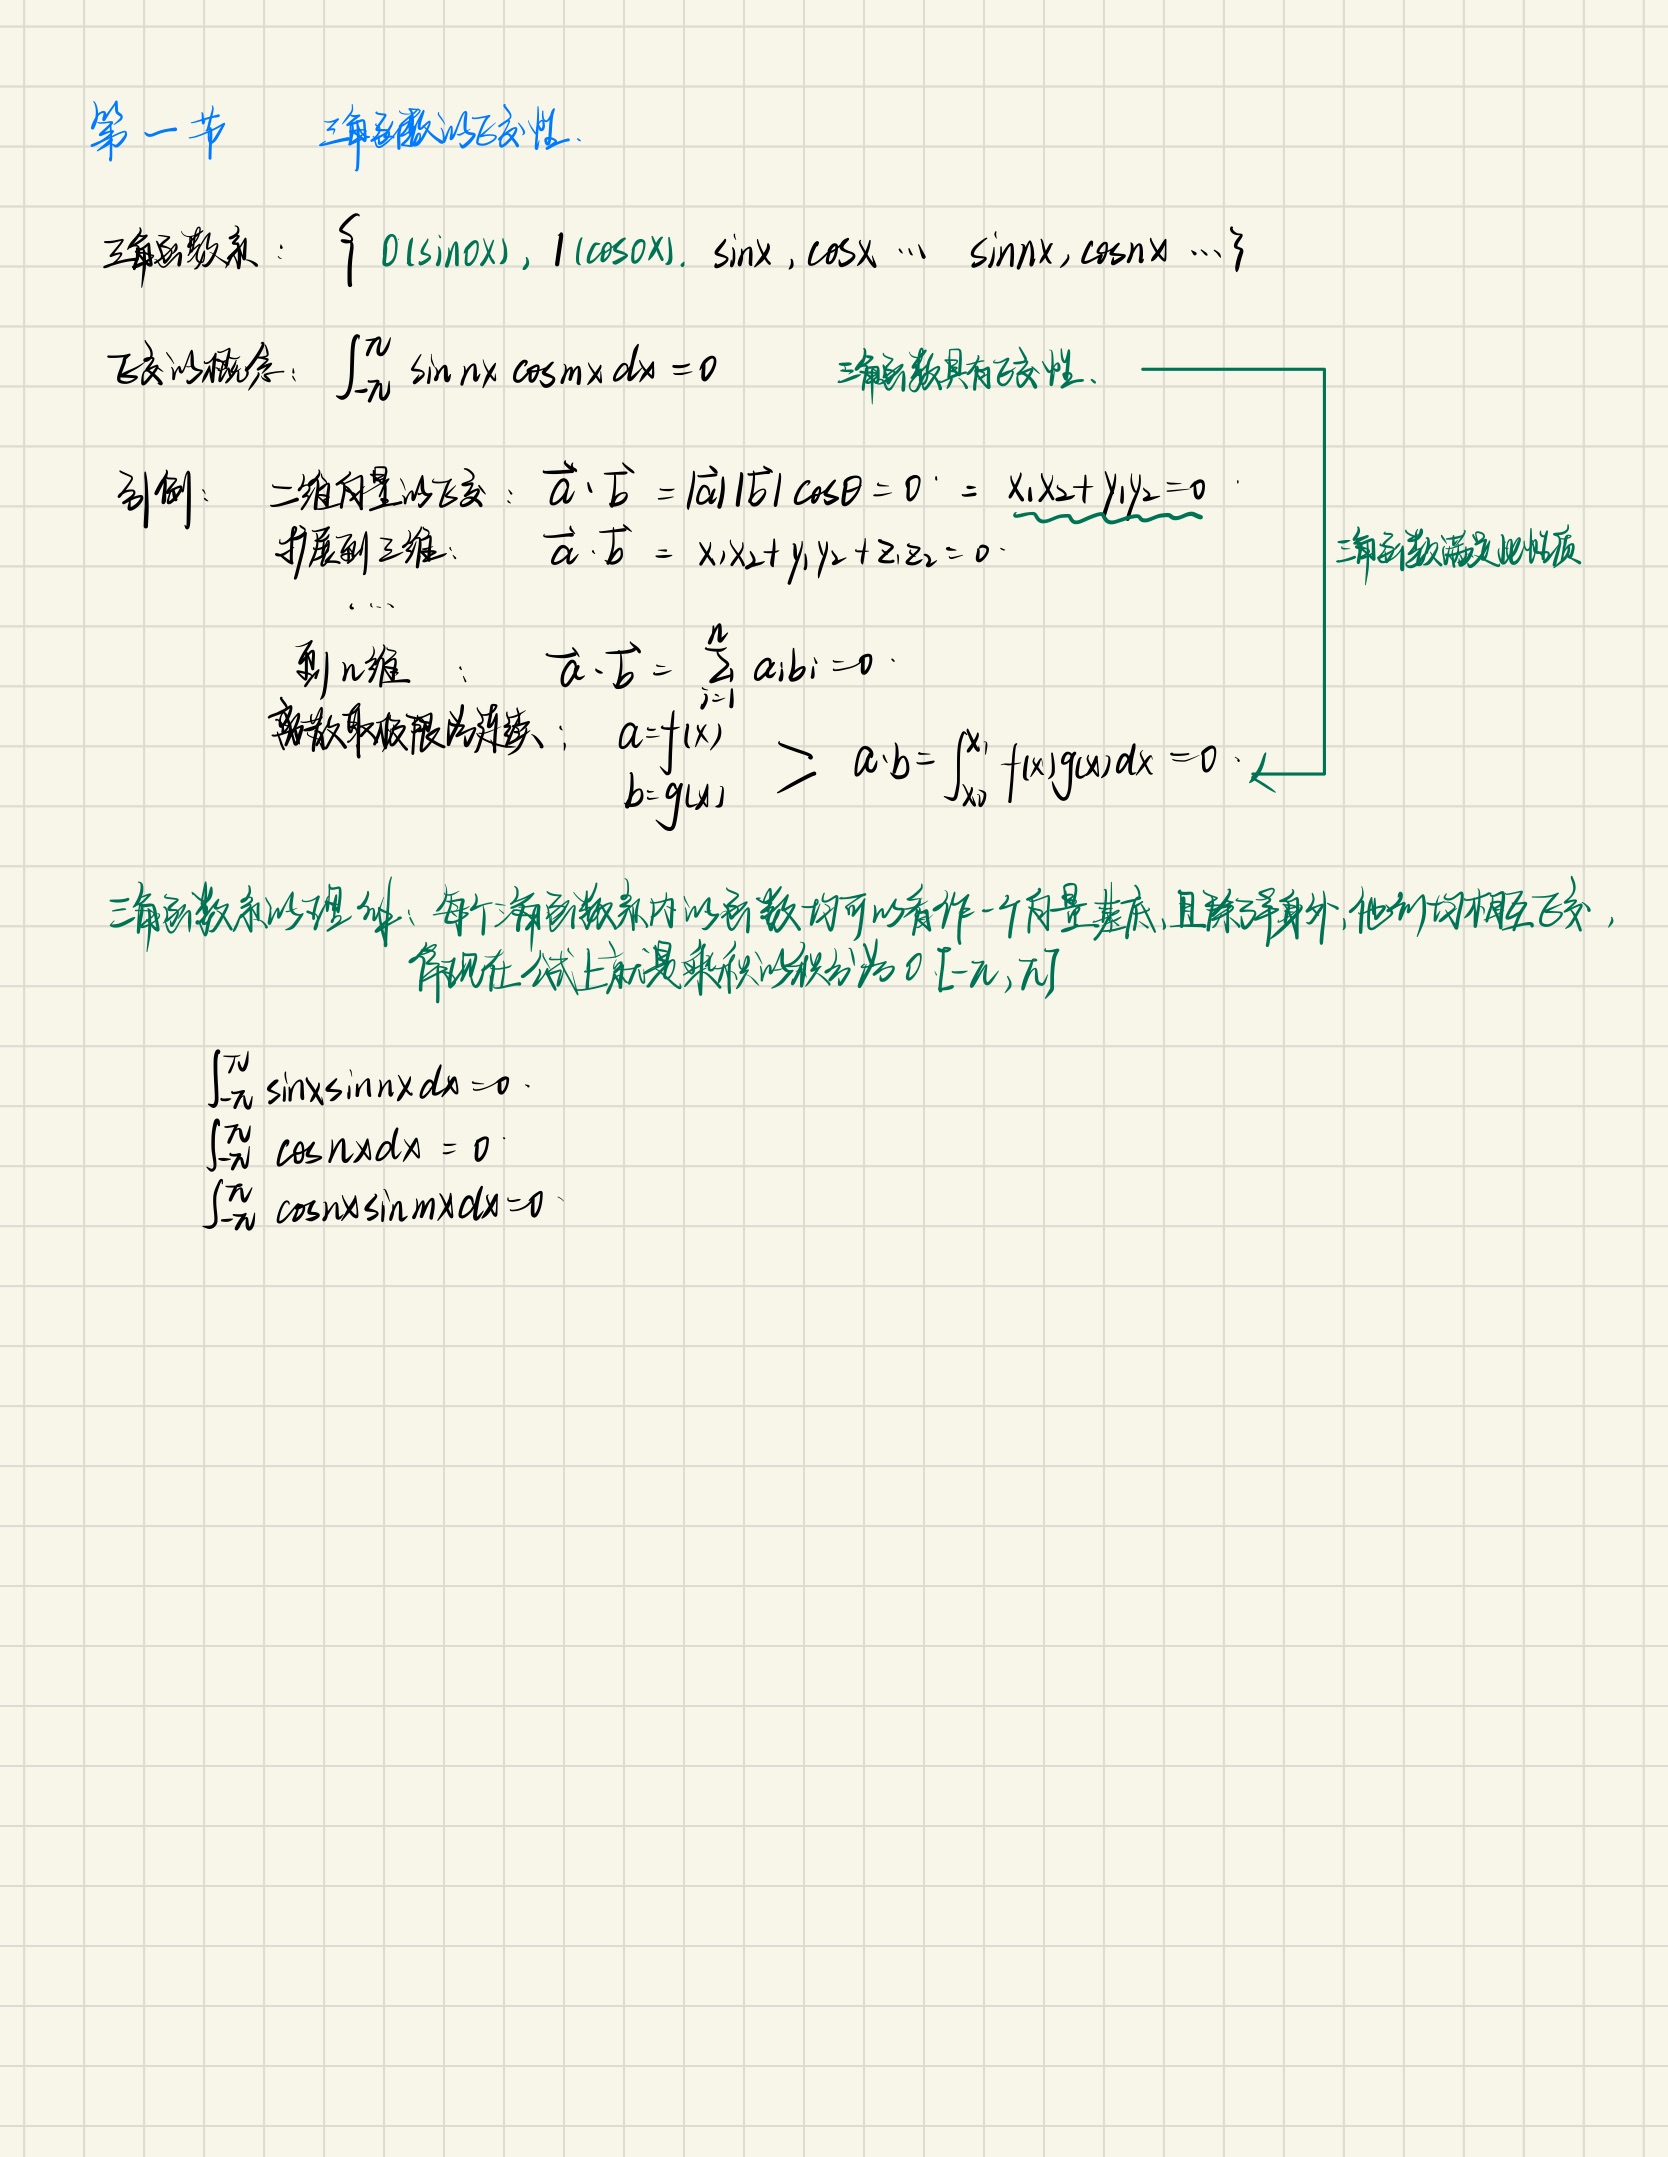 第一节 三角函数的正交性.
三角函数系: { 0(sin0x), 1(cos0x). sinx, cosx … sinnx, cosnx …}
正交的概念: ∫_{-π}^{π} sin nx cosmx dx = 0 三角函数具有正交性、
引例: 二维向量的正交: a⃗·b⃗ = |a⃗||b⃗| cosθ = 0 = x₁x₂+y₁y₂=0
扩展到三维: a⃗·b⃗ = x₁x₂+y₁y₂+z₁z₂=0.
三角函数满足此性质
…
到n维: a⃗·b⃗ = ∑_{i=1}^{n} aᵢbᵢ = 0.
离散取极限为连续: a=f(x)
b=g(x) > a·b = ∫_{x₀}^{x₁} f(x)g(x)dx = 0.
三角函数系的理解: 每个三角函数系内的函数均可以看作一个向量基底,且除了本身外,他们均相互正交,
体现在公式上就是乘积的积分为0 [-π, π]
∫_{-π}^{π} sinxsinnxdx=0.
∫_{-π}^{π} cosnxdx = 0
∫_{-π}^{π} cosnxsinmxdx=0